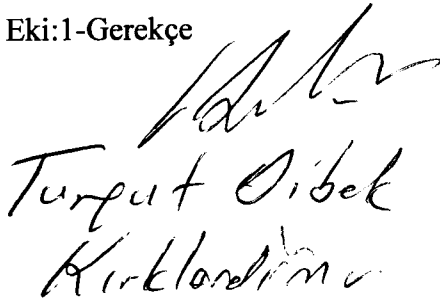 Eki:1-Gerekçe
Turgut Dibek
Kırklareli